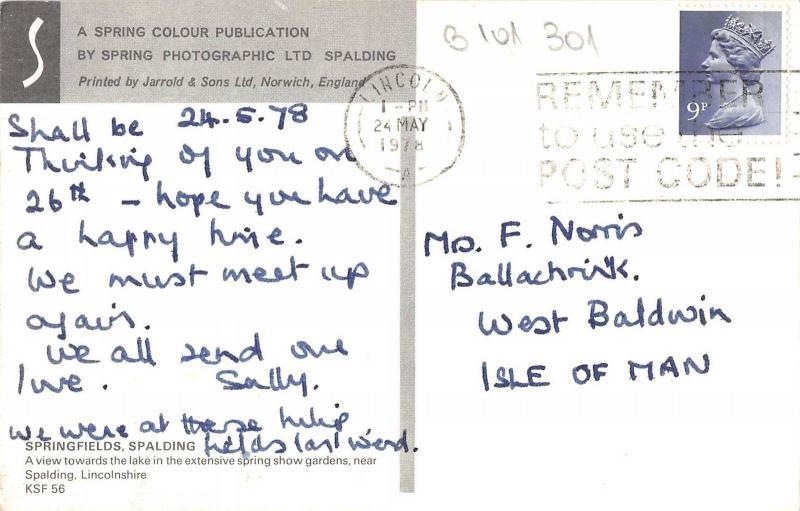 S
A SPRING COLOUR PUBLICATION
BY SPRING PHOTOGRAPHIC LTD SPALDING
Printed by Jarrold & Sons Ltd, Norwich, England
24.5.78
Shall be
Thinking of you on
26th – hope you have
a happy time.
We must meet up
again.
We all send our
love. Sally.
we were at these tulip
fields last
SPRINGFIELDS, SPALDING
A view towards the lake in the extensive spring show gardens, near
Spalding, Lincolnshire
KSF 56
B 101 301
LINCOLN
1 - PM
24 MAY
1978
A
REMEMBER
to use the
POST CODE!
9P
Mrs. F. Norris
West Baldwin
ISLE OF MAN